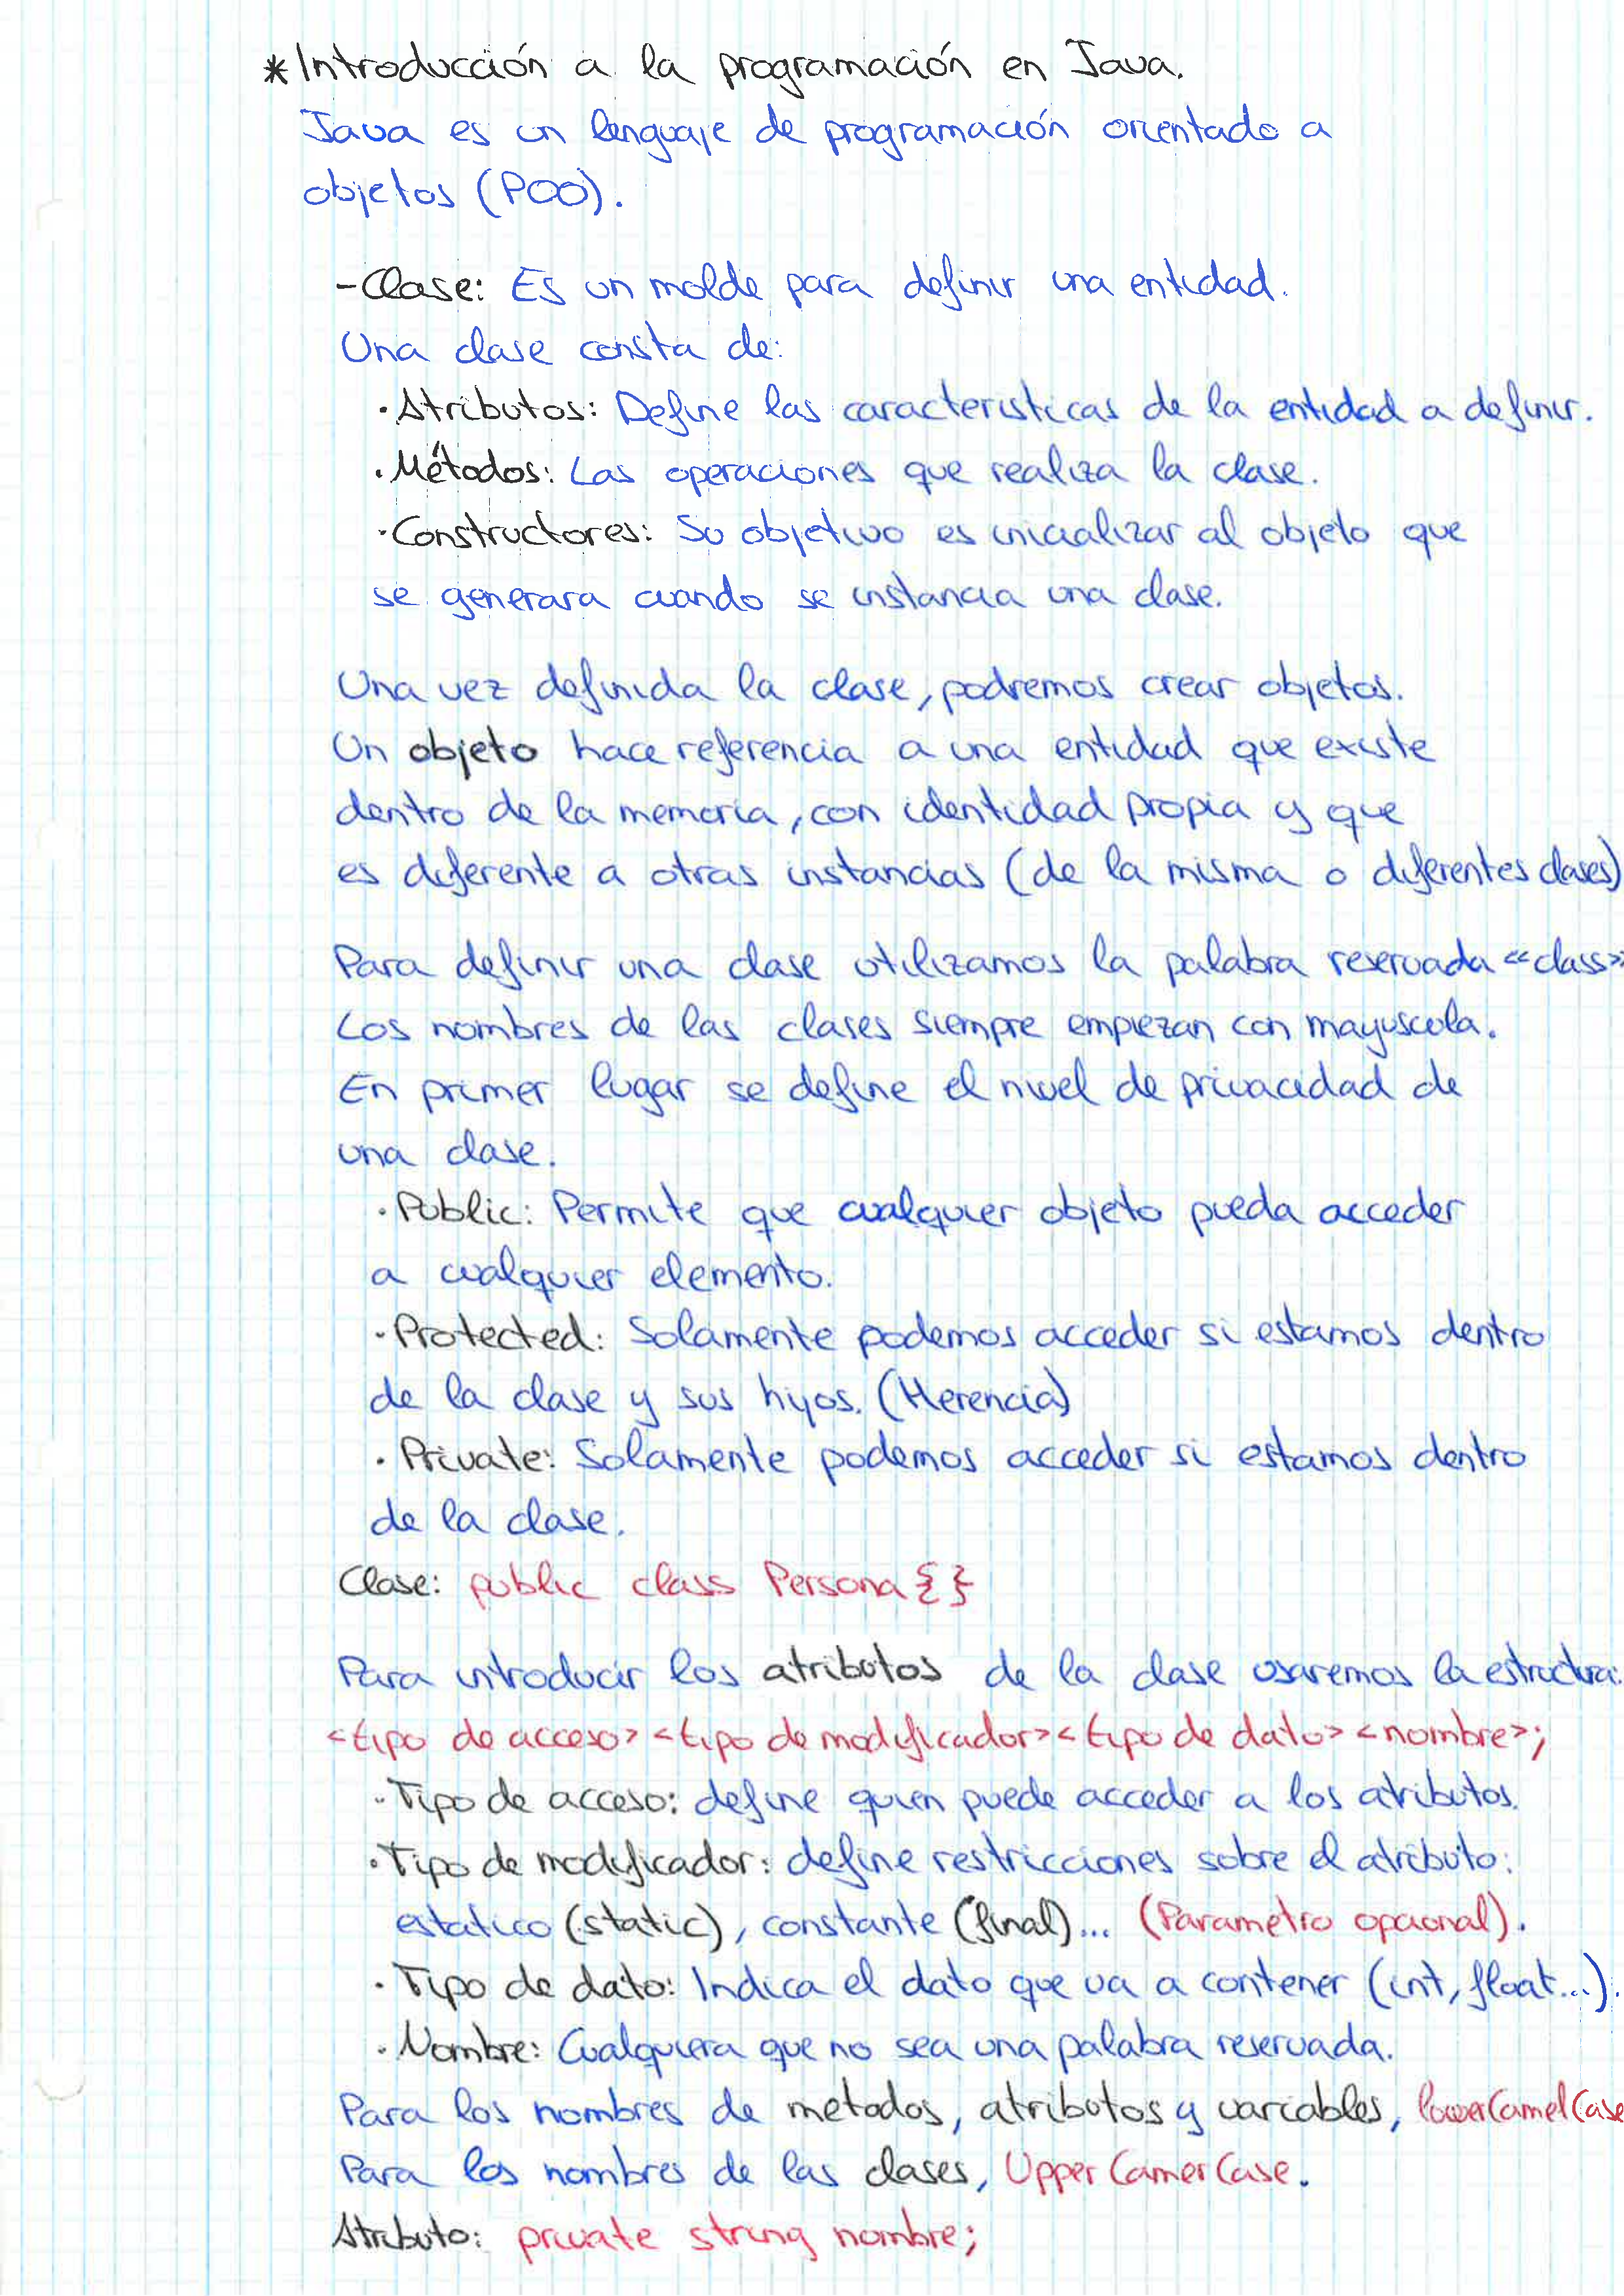 *Introducción a la programación en Java.
Java es un lenguaje de programación orientado a
objetos (POO).
-Clase: Es un molde para definir una entidad.
Una clase consta de:
·Atributos: Define las caracteristicas de la entidad a definir.
·Métodos: Las operaciones que realiza la clase.
·Constructores: Su objetivo es inicializar al objeto que
se generara cuando se instancia una clase.
Una vez definida la clase, podremos crear objetos.
Un objeto hace referencia a una entidad que existe
dentro de la memoria, con identidad propia y que
es diferente a otras instancias (de la misma o diferentes clases)
Para definir una clase utilizamos la palabra reservada «class»
Los nombres de las clases siempre empiezan con mayuscula.
En primer lugar se define el nivel de privacidad de
una clase.
·Public: Permite que cualquier objeto pueda acceder
a cualquier elemento.
·Protected: Solamente podemos acceder si estamos dentro
de la clase y sus hijos. (Herencia)
·Private: Solamente podemos acceder si estamos dentro
de la clase.
Clase: public class Persona {}
Para introducir los atributos de la clase usaremos la estructura:
<tipo de acceso> <tipo de modificador> <tipo de dato> <nombre>;
·Tipo de acceso: define quien puede acceder a los atributos.
·Tipo de modificador: define restricciones sobre el atributo:
estatico (static), constante (final)... (Parametro opcional).
·Tipo de dato: Indica el dato que va a contener (int, float...).
·Nombre: Cualquiera que no sea una palabra reservada.
Para los nombres de metodos, atributos y variables, lowerCamelCase
Para los nombres de las clases, UpperCamerCase.
Atributo: private string nombre;